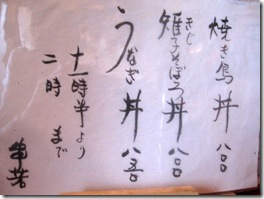 焼き鳥丼 八〇〇
雉子そぼろ丼 八〇〇
きじ
うなぎ丼 八五〇
十一時半より
二時まで
串若